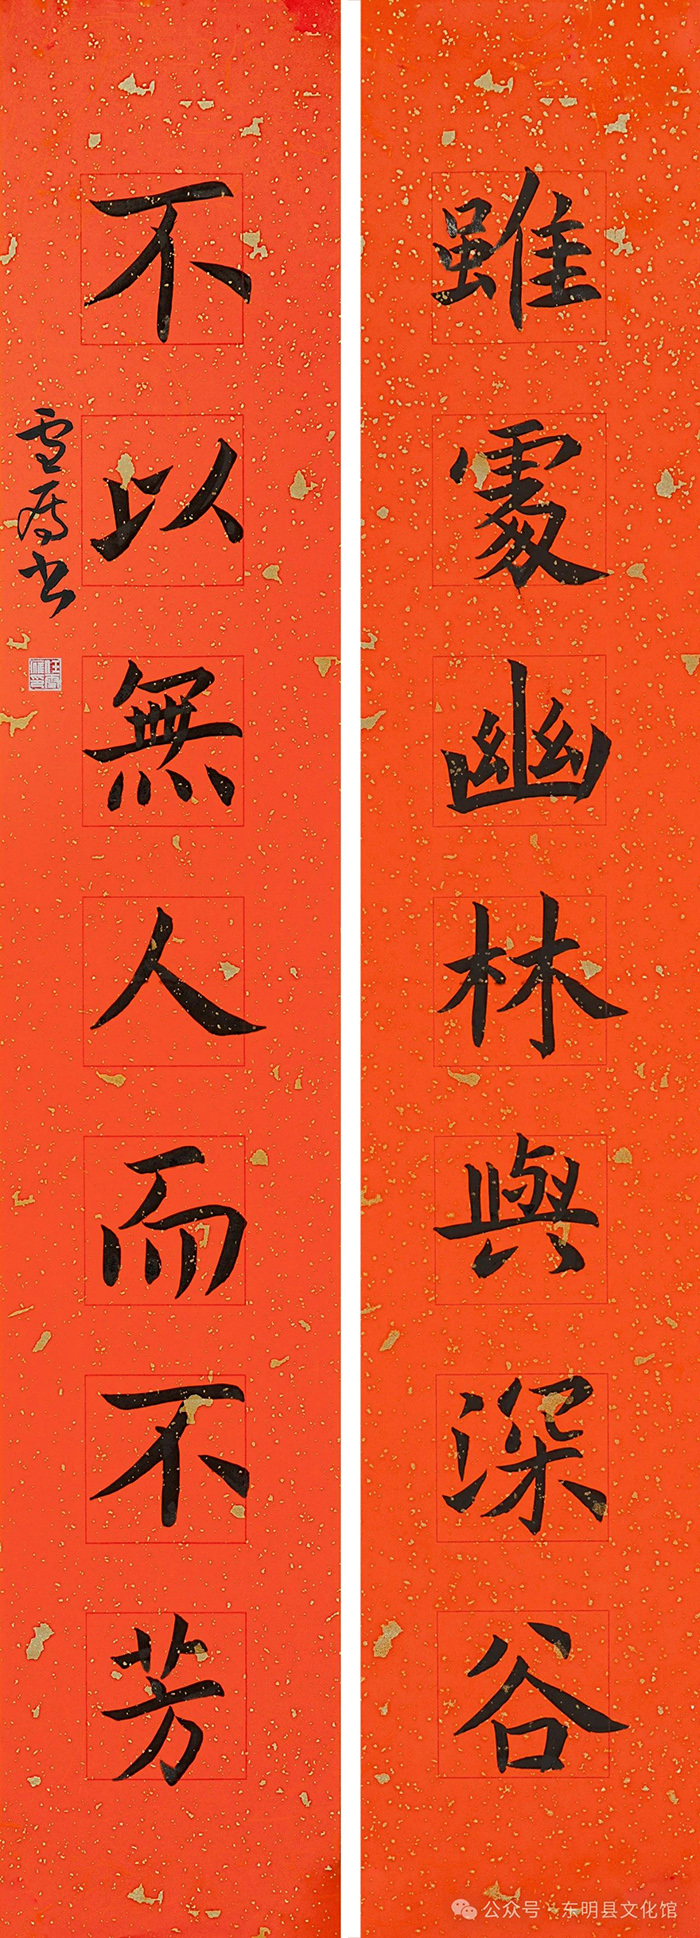 雖處幽林與深谷
不以無人而不芳
公众号·东明县文化馆